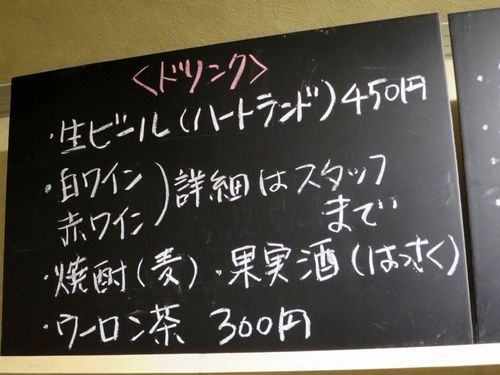 〈ドリンク〉
・生ビール(ハートランド)450円
・白ワイン
赤ワイン
)詳細はスタッフ
まで
・焼酎(麦)・果実酒(はっさく)
・ウーロン茶 300円